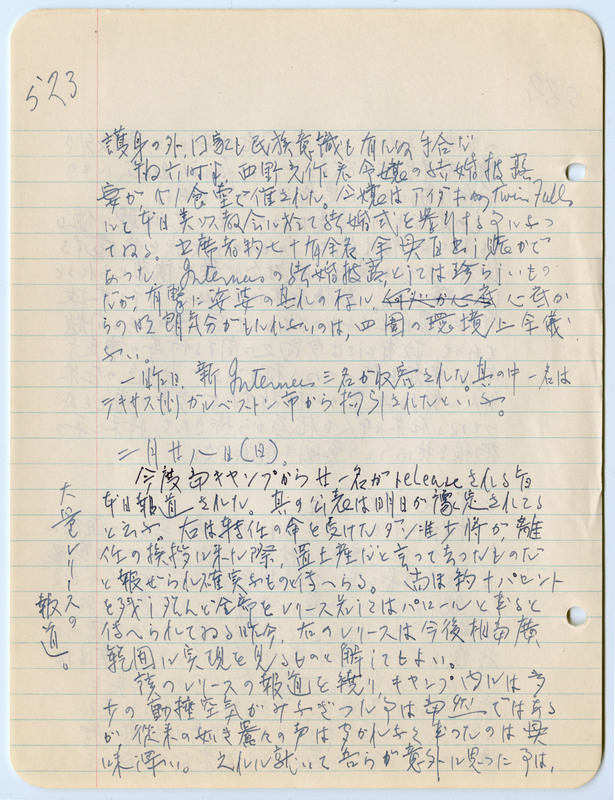 523
護身の外、口家も民族意識も有たぬ手合だ
晩六時半、西野文作 令嬢の結婚披露
宴が、K1食堂で催された。令嬢はアイダホ州Twin Falls
にて本日美以教会に於て結婚式を挙行する
てゐる。出席者約七十有余名、
であつた。Interneesの結婚披露としては珍らしいもの
だが、 心底か
らの明朗気分がもれないのは、四囲の環境上余儀
ない。
一昨日、新Internees三名が収容された。其の中一名は
テキサス州ガルベストン市から拘引されたといふ。
二月廿八日(日)。
今度当キャンプから廿一名がreleaseされる旨
本日報道された。其の公表は明日が豫定されてる
と云ふ。右は転任の命を受けたダン准少将が、離
任の挨拶に来た際、置土産だと言つて去つたものだ
と報ぜられ確実なものと傳へらる。尚ほ約十パセント
を残し殆んど全部をレリース若しくはパロールとなると
傳へられてゐる昨今、右のレリースは今後相当廣
範囲に実現を見るものと解してもよい。
大量レリースの
報道。
該のレリースの報道を繞り、キャンプ内には多
少の動揺空気がみなぎつた事は当然ではある
が、従来の如き囂々の声はきかれなくなつたのは興
味深い。之れに就いて吾らが意外に思つた事は、